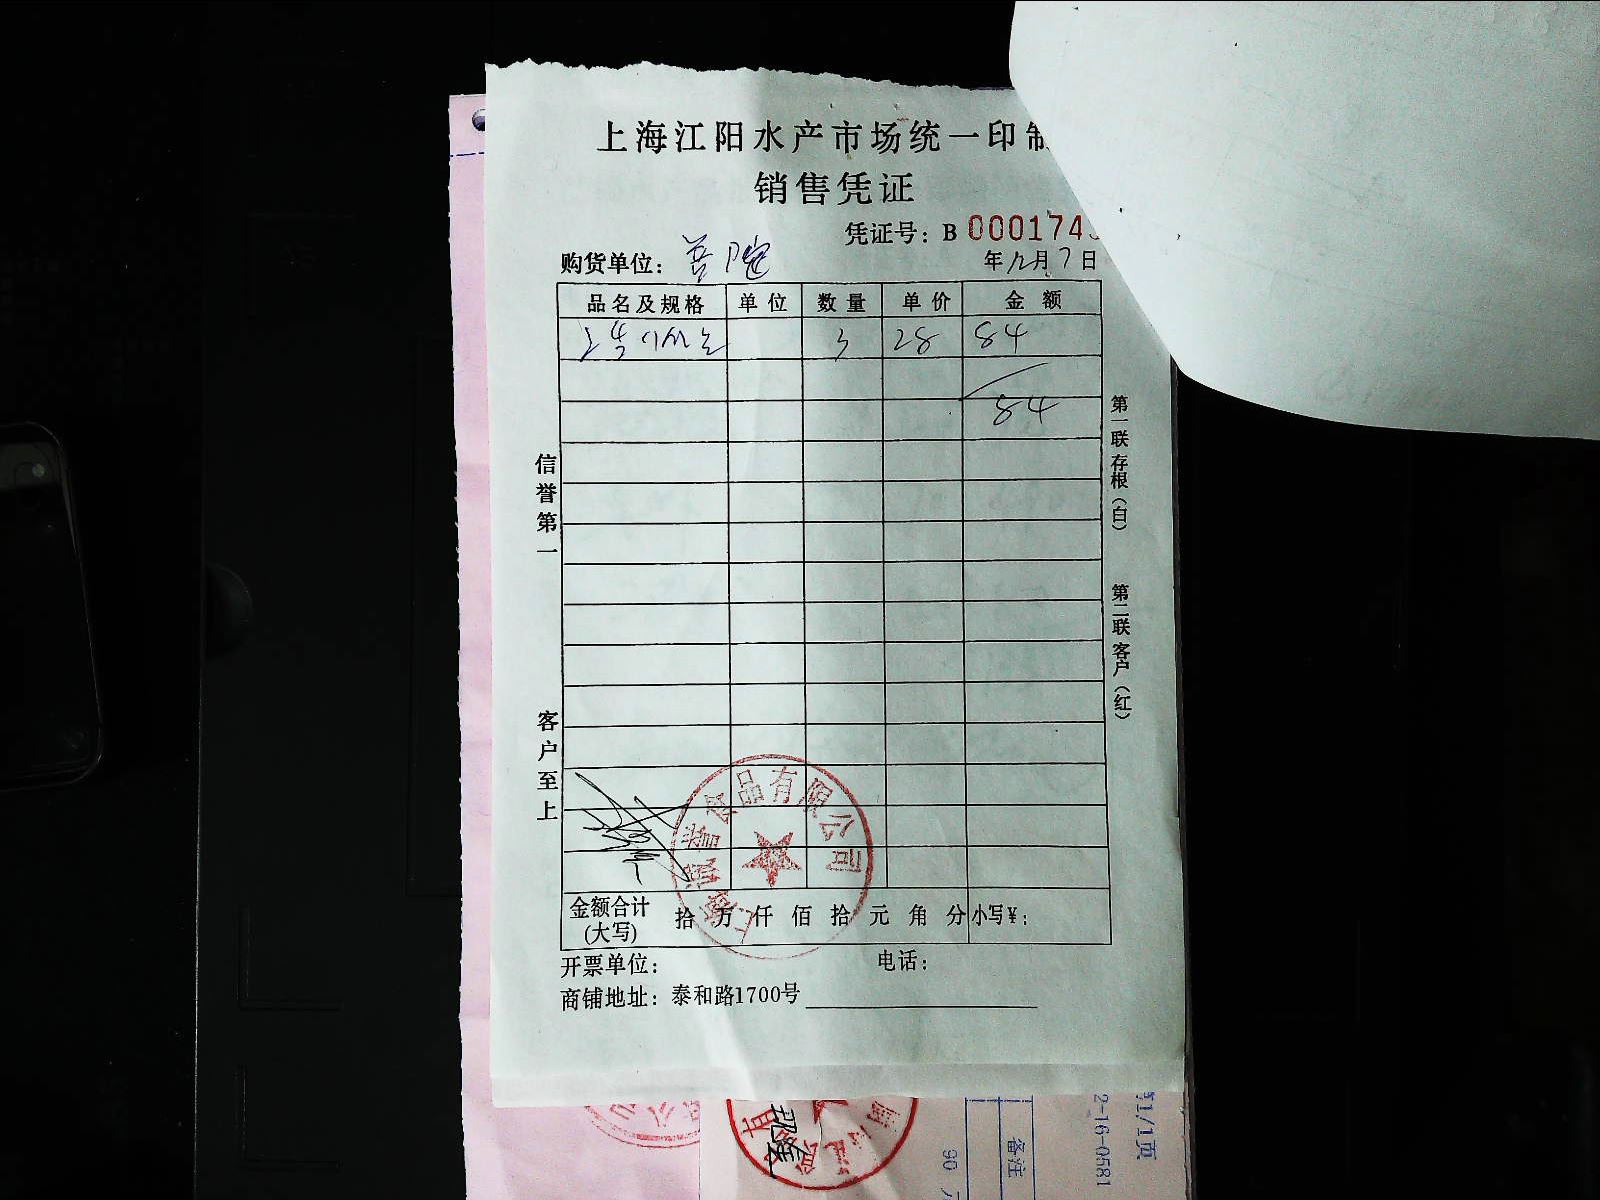 上海江阳水产市场统一印制
销售凭证
凭证号：B 0001743
购货单位：
年12月7日
品名及规格 单位 数量 单价 金额
3 28 84
84
信誉第一
客户至上
第一联 存根（白）
第二联 客户（红）
上海诚誉食品有限公司
金额合计(大写) 拾 万 仟 佰 拾 元 角 分 小写¥：
开票单位： 电话：
商铺地址：泰和路1700号
第1/1页
2-16-0581
备注
90